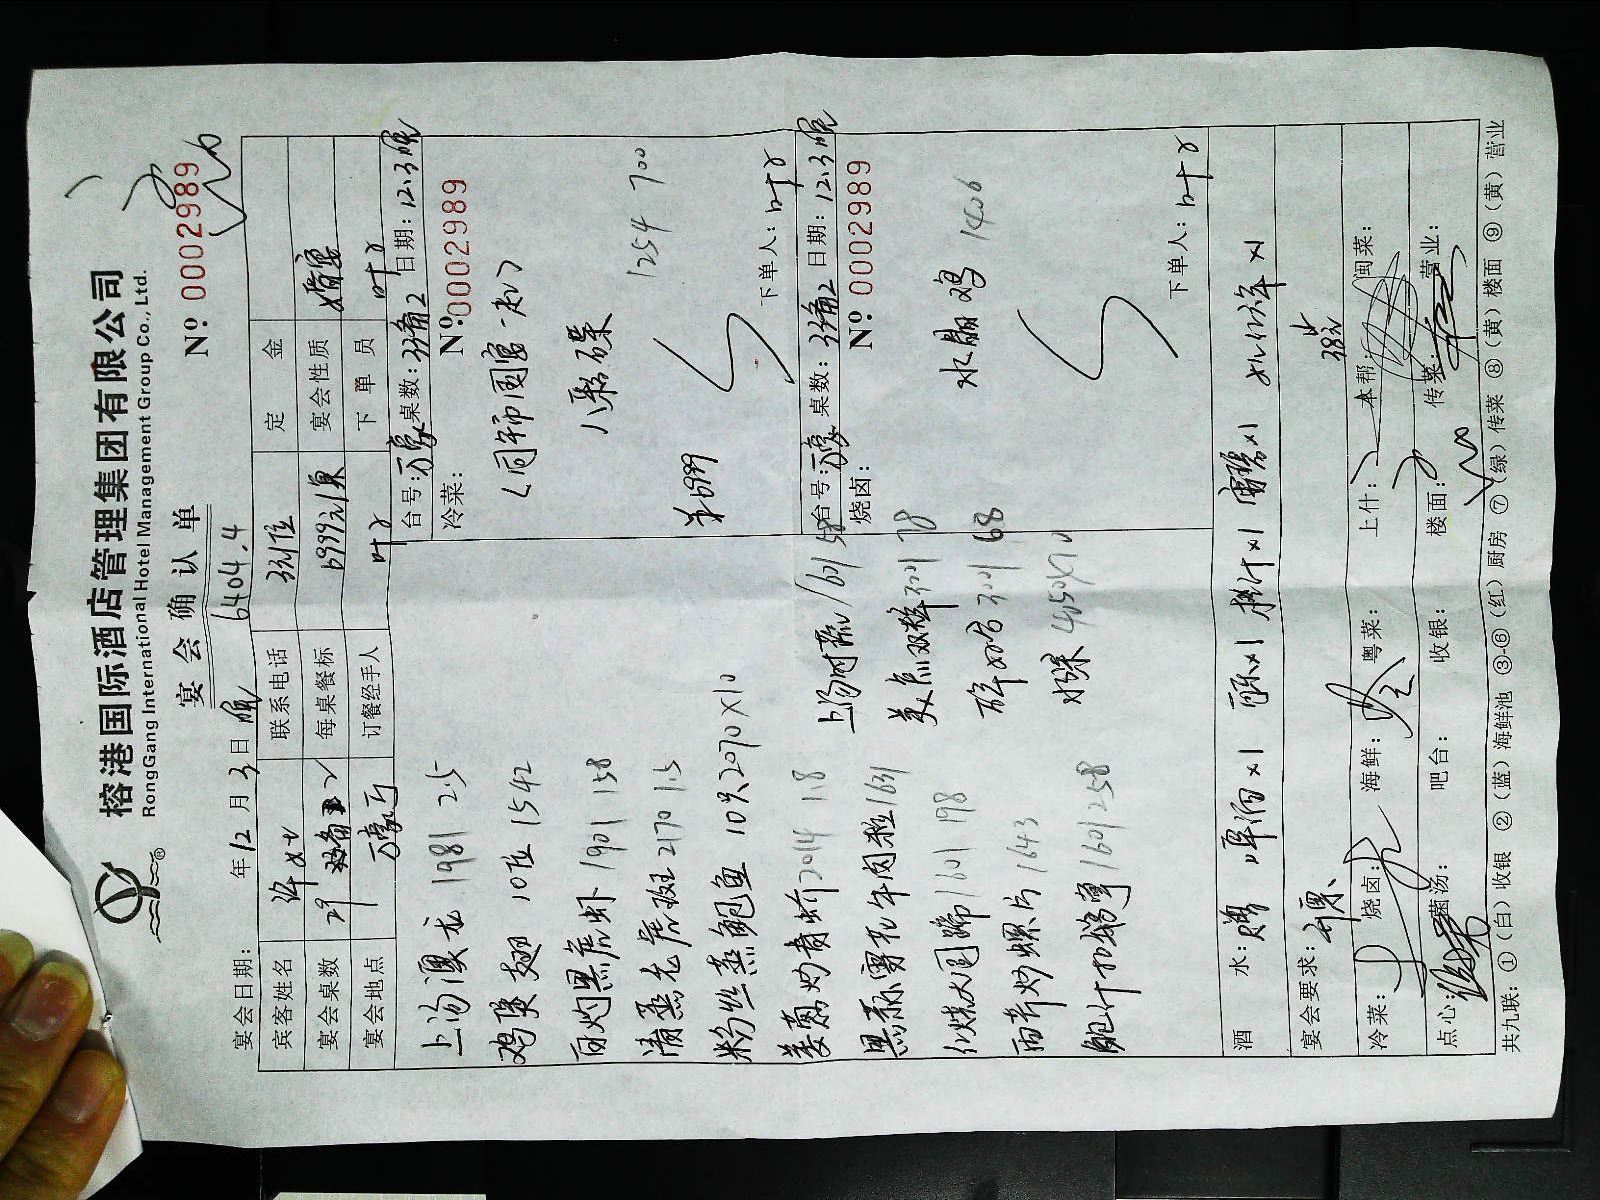 榕港国际酒店管理集团有限公司
RongGang International Hotel Management Group Co., Ltd.
宴会确认单
Nº 0002989
宴会日期: 年12月3日晚 6404.4
宾客姓名 许女士 联系电话 定金
宴会桌数 29 每桌餐标 6999元/桌 宴会性质 婚宴
宴会地点 万豪厅 订餐经手人 叶 下单员 叶
上汤澳龙 1981 2.5
鸡煲翅 10位 1542
白灼黑虎虾 1901 158
清蒸老虎斑 2170 1.5
粉丝蒸鲍鱼 10只 2070×10
姜葱炒青蚧 2014 1.8
黑椒雪花牛肉粒 1631
红烧大圆蹄 1601 198
西芹炒螺片 1643
鲍汁扣鹅掌 1601 258
上汤时蔬 1601 58
美点双辉 78
68
4050×10
台号: 万豪 桌数: 日期: 12.3晚
冷菜:
Nº: 0002989
八彩碟
1254 700
6999
下单人: 叶
台号: 万豪 桌数: 日期: 12.3晚
烧卤:
Nº 0002989
水晶鸡 1406
下单人: 叶
酒水: 赠 啤酒×1 橙汁×1 雪碧×1
宴会要求:
38元
冷菜: 烧卤: 海鲜: 粤菜: 上什: 本帮: 闽菜:
点心: 菌汤: 吧台: 收银: 楼面: 传菜: 营业:
共九联: ①(白)收银 ②(蓝)海鲜池 ③-⑥(红)厨房 ⑦(绿)传菜 ⑧(黄)楼面 ⑨(黄)营业